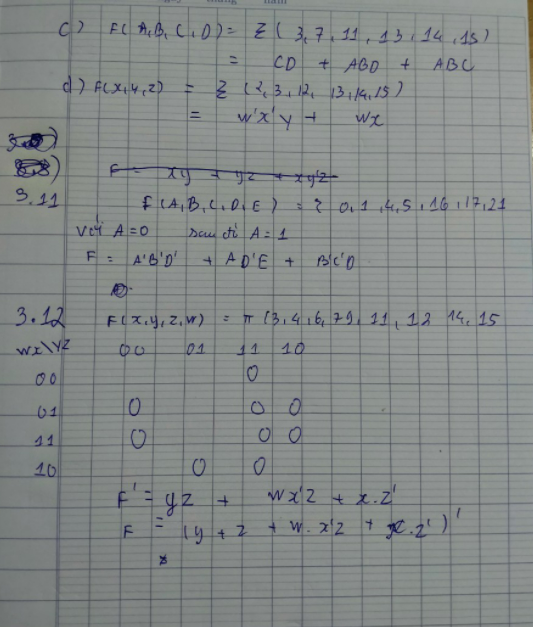 c) F(A,B,C,D) = Σ(3,7,11,13,14,15)
= CD + ABD + ABC
d) F(x,y,z) = Σ(2,3,12, 13,14,15)
= w'x'y + wx
F = xy + yz + xy'z
3.11 F(A,B,C,D,E) = Σ 0,1,4,5,16,17,21
Với A=0 sau đó A=1
F = A'B'D' + AD'E + B'C'D
3.12 F(x,y,z,w) = π(3,4,6,79,11,12 14,15
wx\yz 00 01 11 10
00 0
01 0 0 0
11 0 0 0
10 0 0
F' = yz + wx'z + x.z'
F = (y+z + w.x'z + x.z')'